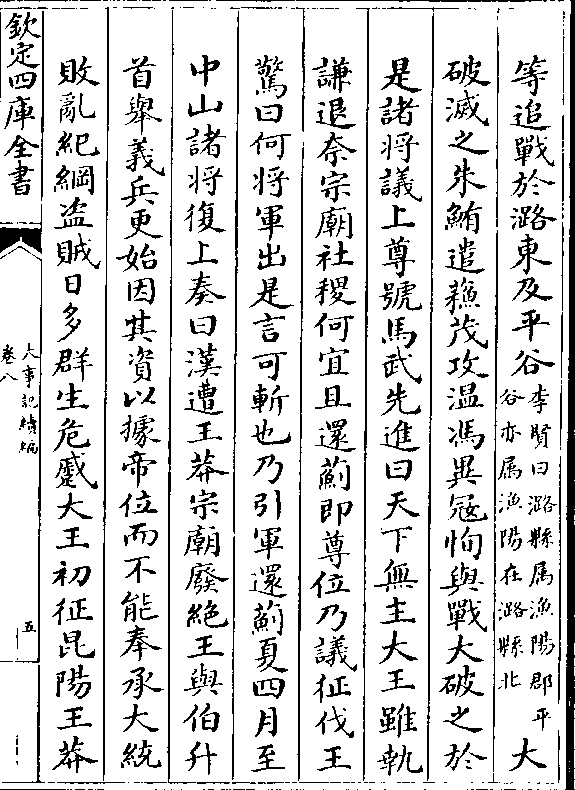 等追戰於潞東及平谷李賢曰潞縣属漁陽郡平谷亦属漁陽在潞縣北大
破滅之朱鮪遣蘓茂攻温馮異冦恂與戰大破之於
是諸将議上尊號馬武先進曰天下無主大王雖執
謙退奈宗廟社稷何宜且還薊即尊位乃議征伐王
驚曰何将軍出是言可斬也乃引軍還薊夏四月至
中山諸将復上奏曰漢遭王莽宗廟廢絶王與伯升
首舉義兵更始因其資以據帝位而不能奉承大統
敗亂紀綱盗賊日多群生危蹙大王初征昆陽王莽
欽定四庫全書
大事記續編
卷八
五